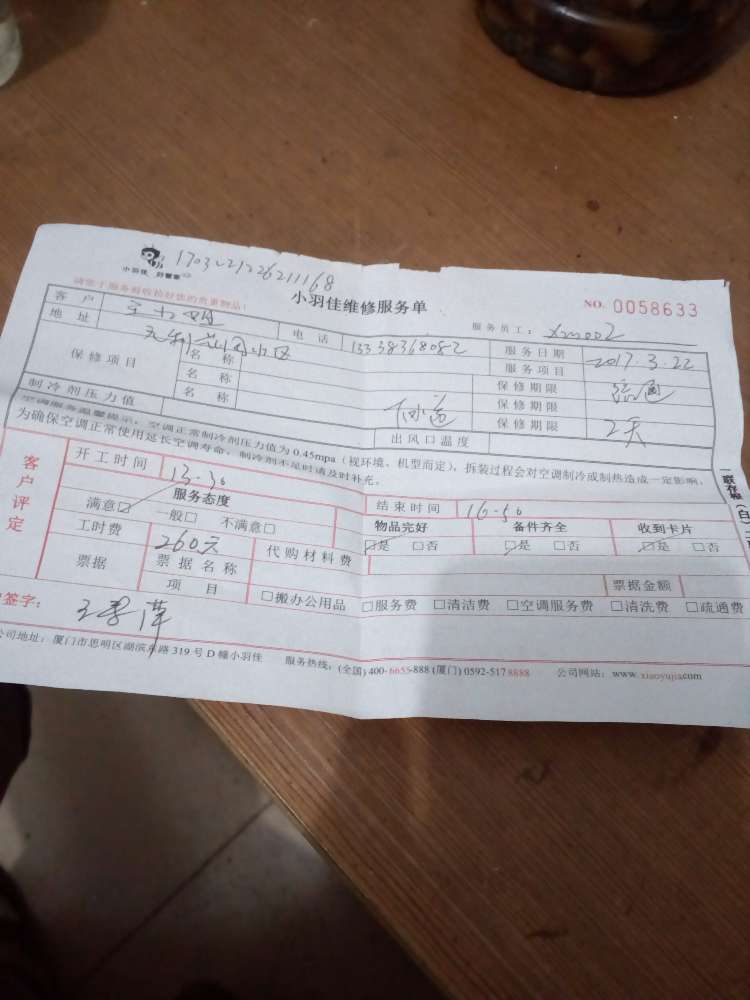 小羽佳 好管家
小羽佳维修服务单
NO. 0058633
请您于服务前收拾好您的贵重物品:
服务员工: xm002
客户
电话 13338368082
服务日期 2017.3.22
地址 花园小区
服务项目
保修项目
名称
保修期限
名称
下水道
保修期限
名称
保修期限 2天
制冷剂压力值
出风口温度
空调服务温馨提示:空调正常制冷剂压力值为0.45mpa(视环境、机型而定),拆装过程会对空调制冷或制热造成一定影响,
为确保空调正常使用延长空调寿命,制冷剂不足时请及时补充。
客户评定
开工时间 13-30
结束时间 16-50
服务态度
物品完好
备件齐全
收到卡片
满意☑ 一般□ 不满意□
☑是 □否
☑是 □否
☑是 □否
工时费 260元
代购材料费
票据
票据名称
票据金额
项目
□搬办公用品 □服务费 □清洁费 □空调服务费 □清洗费 □疏通费
签字:
公司地址:厦门市思明区湖滨东路319号D幢小羽佳
服务热线:(全国)400-6655-888 (厦门)0592-5178888
公司网站:www.xiaoyujia.com